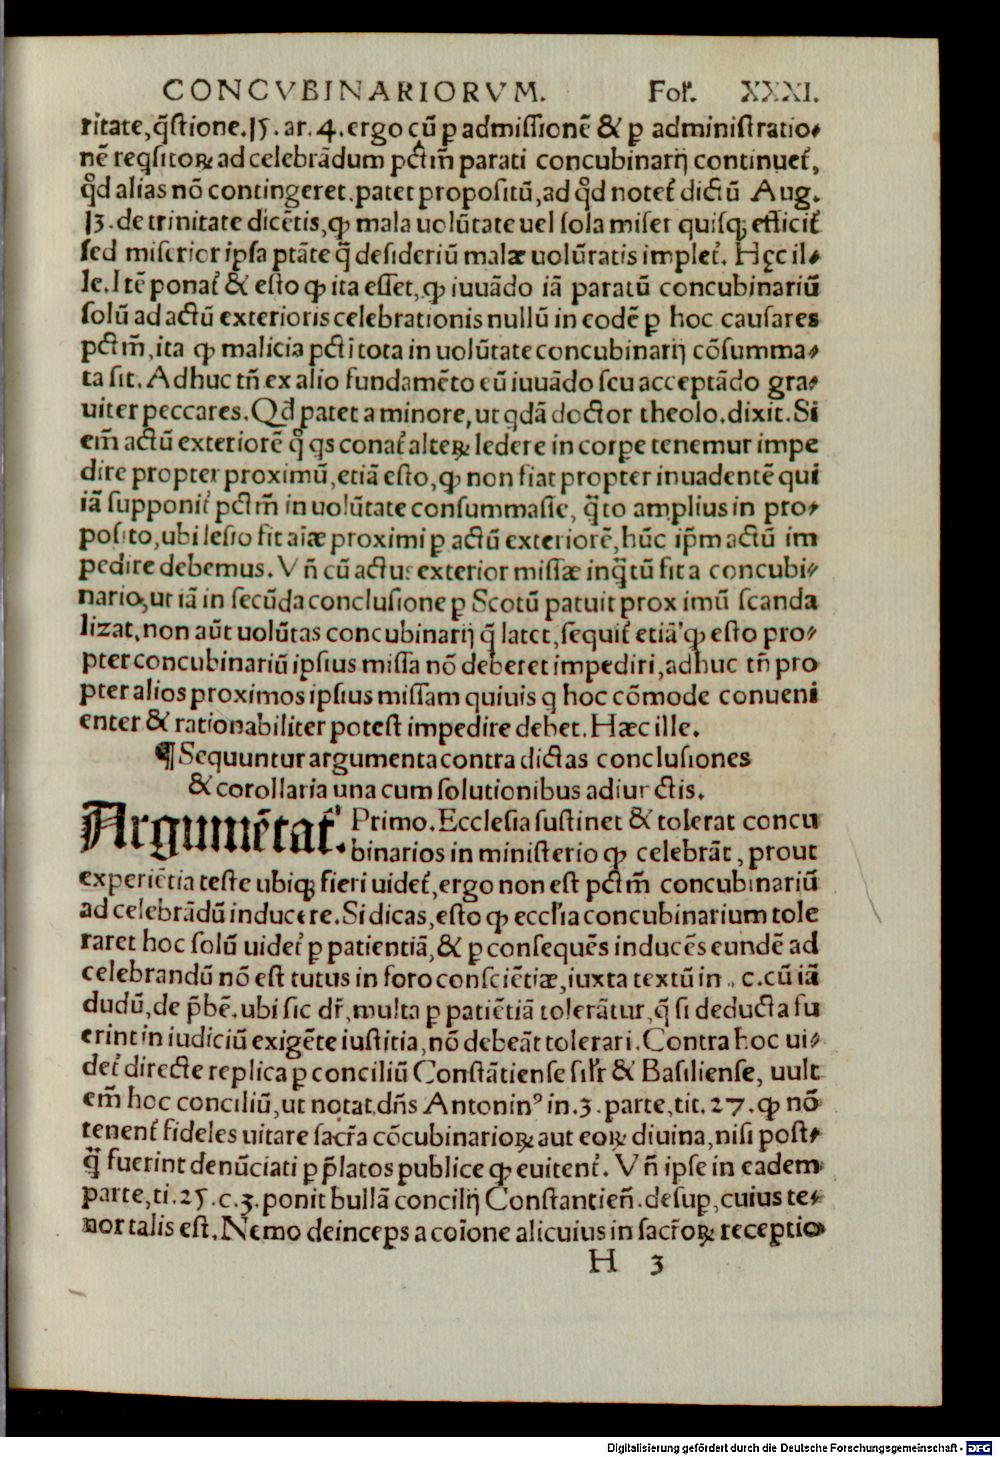 CONCVBINARIORVM. Fol̃. XXXI.
ritate,q̃stione.15.ar.4.ergo cũ ꝑ admissionẽ & ꝑ administratio⸗
nẽ reqsitoꝝ ad celebrãdum pctm̃ parati concubinarij continuet̃,
qd̃ alias nõ contingeret.patet propositũ,ad qd̃ notet̃ dictũ Aug.
13.de trinitate dicẽtis,ꝙ mala uolũtate uel sola miser quisqꝫ efficit̃
sed miserior ipsa ptãte q̃ desideriũ malæ uolũtatis implet̃. Hęc il⸗
le.Itẽ ponat̃ & esto ꝙ ita esset,ꝙ iuuãdo iã paratũ concubinariũ
solũ ad actũ exterioris celebrationis nullũ in eodẽ ꝑ hoc causares
pctm̃,ita ꝙ malicia pcti tota in uolũtate concubinarij cõsumma⸗
ta sit.Adhuc tñ ex alio fundamẽto eũ iuuãdo seu acceptãdo gra⸗
uiter peccares.Qd̃ patet a minore,ut qdã doctor theolo.dixit.Si
em̃ actũ exteriorẽ q̃ qs conat̃ alteꝝ ledere in corpe tenemur impe
dire propter proximũ,etiã esto,ꝙ non fiat propter inuadentẽ qui
iã supponit̃ pctm̃ in uolũtate consummasse, q̃to amplius in pro⸗
posito,ubi lesio fit aiæ proximi ꝑ actũ exteriorẽ,hũc ip̃m actũ im
pedire debemus.Vñ cũ actus exterior missæ inq̃tũ fit a concubi⸗
nario,ut iã in secũda conclusione ꝑ Scotũ patuit proximũ scanda
lizat,non aũt uolũtas concubinarij q̃ latet,sequit̃ etiã ꝙ esto pro⸗
pter concubinariũ ipsius missa nõ deberet impediri,adhuc tñ pro
pter alios proximos ipsius missam quiuis q hoc cõmode conueni
enter & rationabiliter potest impedire debet.Hæc ille.
¶Sequuntur argumenta contra dictas conclusiones
& corollaria una cum solutionibus adiunctis.
Argumẽtat̃. Primo.Ecclesia sustinet & tolerat concu
binarios in ministerio ꝙ celebrãt, prout
experiẽtia teste ubiqꝫ fieri uidet̃,ergo non est pctm̃ concubinariũ
ad celebrãdũ inducere.Si dicas,esto ꝙ eccl̃ia concubinarium tole
raret hoc solũ uidet̃ ꝑ patientiã,& ꝑ consequẽs inducẽs eundẽ ad
celebrandũ nõ est tutus in foro consciẽtiæ,iuxta textũ in . c.cũ iã
dudũ,de p̃bẽ.ubi sic dr̃,multa ꝑ patiẽtiã tolerãtur,q̃ si deducta fu
erint in iudiciũ exigẽte iustitia,nõ debeãt tolerari.Contra hoc ui⸗
det̃ directe replica ꝑ conciliũ Constãtiense sil̃r & Basiliense, uult
em̃ hoc conciliũ,ut notat dñs Antoninꝰ in.3.parte,tit.27.ꝙ nõ
tenent̃ fideles uitare sacr̃a cõcubinarioꝝ aut eoꝝ diuina,nisi post⸗
q̃ fuerint denũciati ꝑ p̃latos publice ꝙ euitent̃. Vñ ipse in eadem
parte,ti.25.c.3.ponit bullã concilij Constantień.desup,cuius te⸗
nor talis est.Nemo deinceps a coĩone alicuius in sacr̃oꝝ receptio⸗
H 3
Digitalisierung gefördert durch die Deutsche Forschungsgemeinschaft - DFG